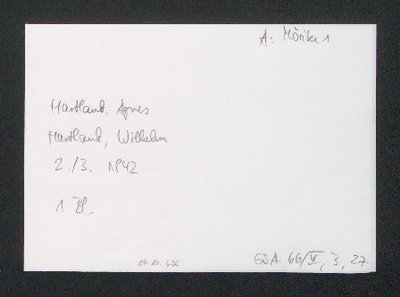 A: Mörike 1
Hartlaub, Agnes
Hartlaub, Wilhelm
2./3. 1842
1 Bl.
GSA 66/V, 3, 27